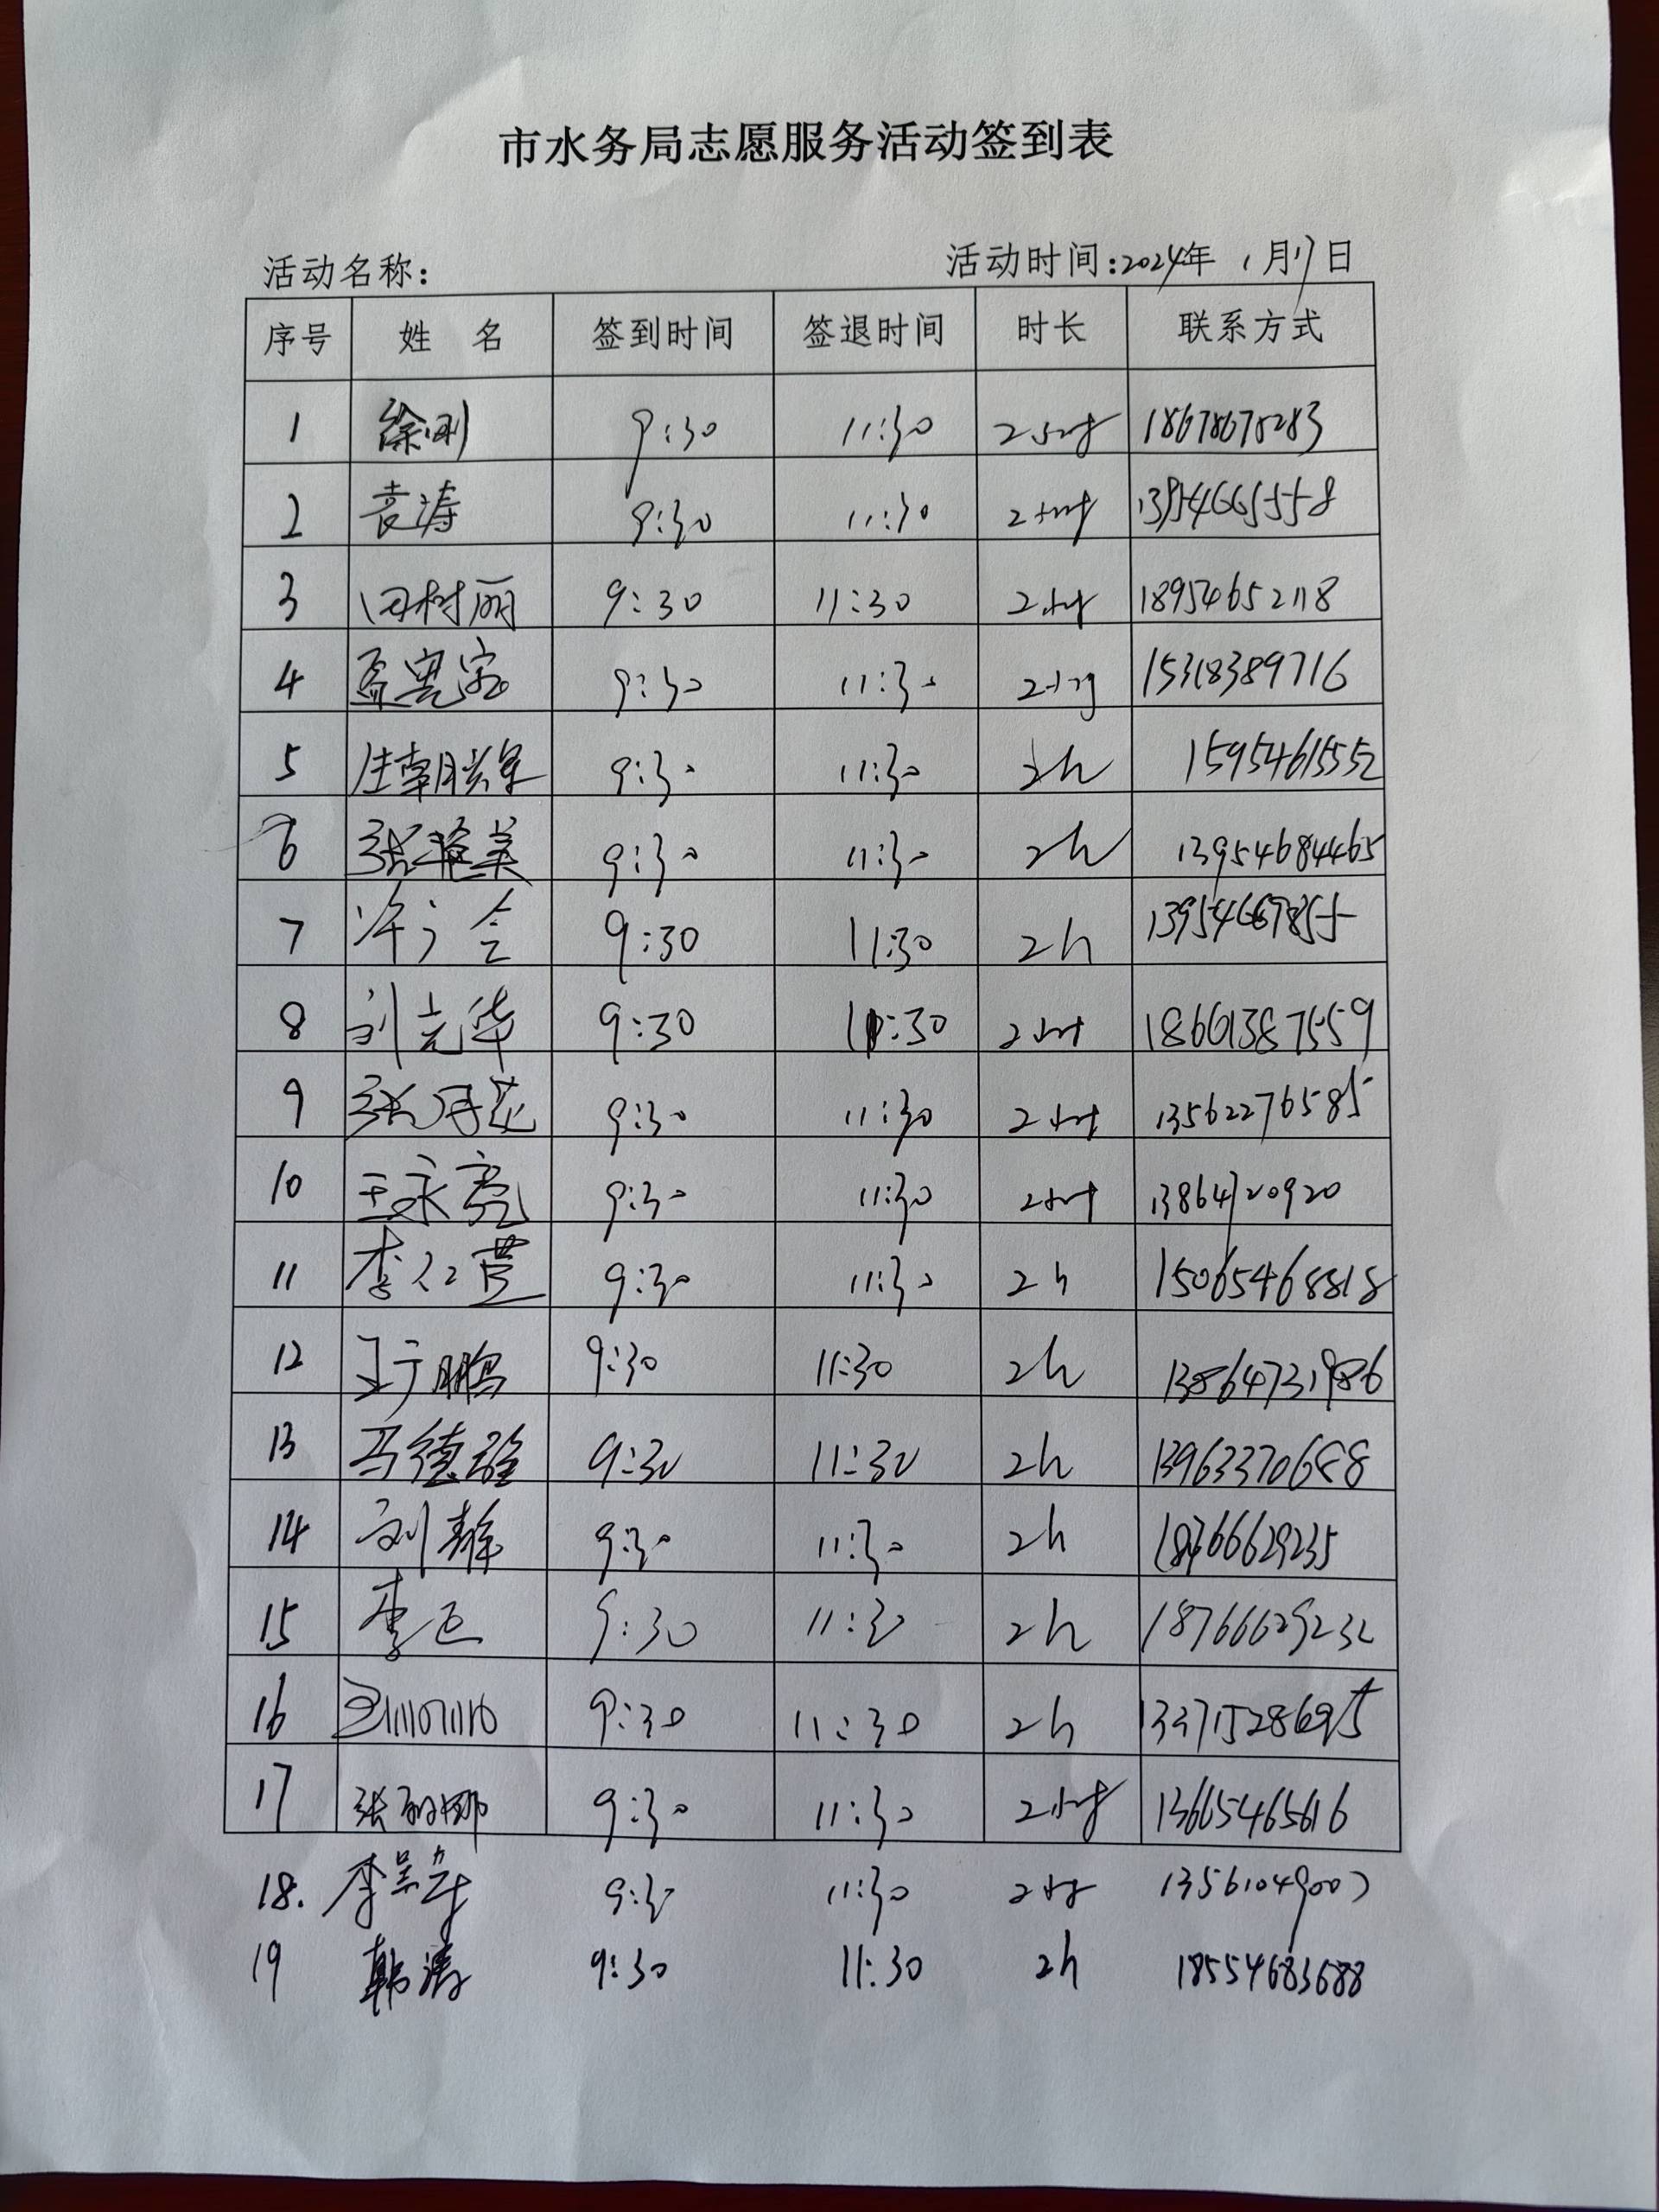 市水务局志愿服务活动签到表
活动名称： 活动时间：2024年 1月17日
序号 姓 名 签到时间 签退时间 时长 联系方式
1 徐刚 9:30 11:30 2小时 18678678283
2 袁涛 9:30 11:30 2小时 13954665558
3 田树丽 9:30 11:30 2小时 18954652118
4 孟宪家 9:30 11:30 2小时 15318389716
5 9:30 11:30 2h 15954615552
6 张艳美 9:30 11:30 2h 13954684465
7 许广会 9:30 11:30 2h 13954667855
8 刘元华 9:30 11:30 2小时 18661387559
9 张月花 9:30 11:30 2小时 13562276585
10 王永亮 9:30 11:30 2小时 13864720920
11 李仁萱 9:30 11:30 2h 15065468818
12 王宁鹏 9:30 11:30 2h 13864731986
13 马德强 9:30 11:30 2h 13963370688
14 刘静 9:30 11:30 2h 18766629235
15 9:30 11:30 2h 18766629232
16 9:30 11:30 2h 13371528695
17 9:30 11:30 2小时 13665465616
18. 李 9:30 11:30 2小时 13561049007
19 韩涛 9:30 11:30 2h 18554683688